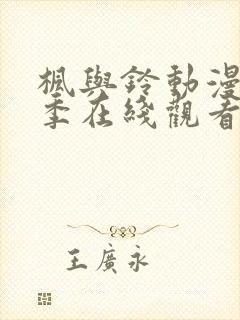 楓與鈴動漫
季在綫觀看
王廣永